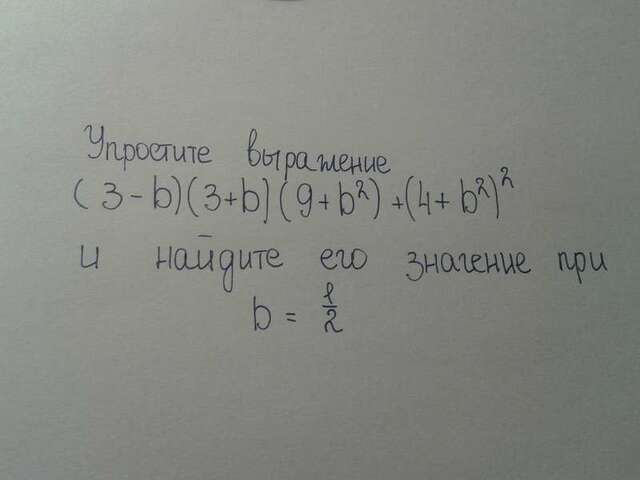 Упростите выражение
(3-b)(3+b)(9+b²)+(4+b²)²
и найдите его значение при
b = 1/2